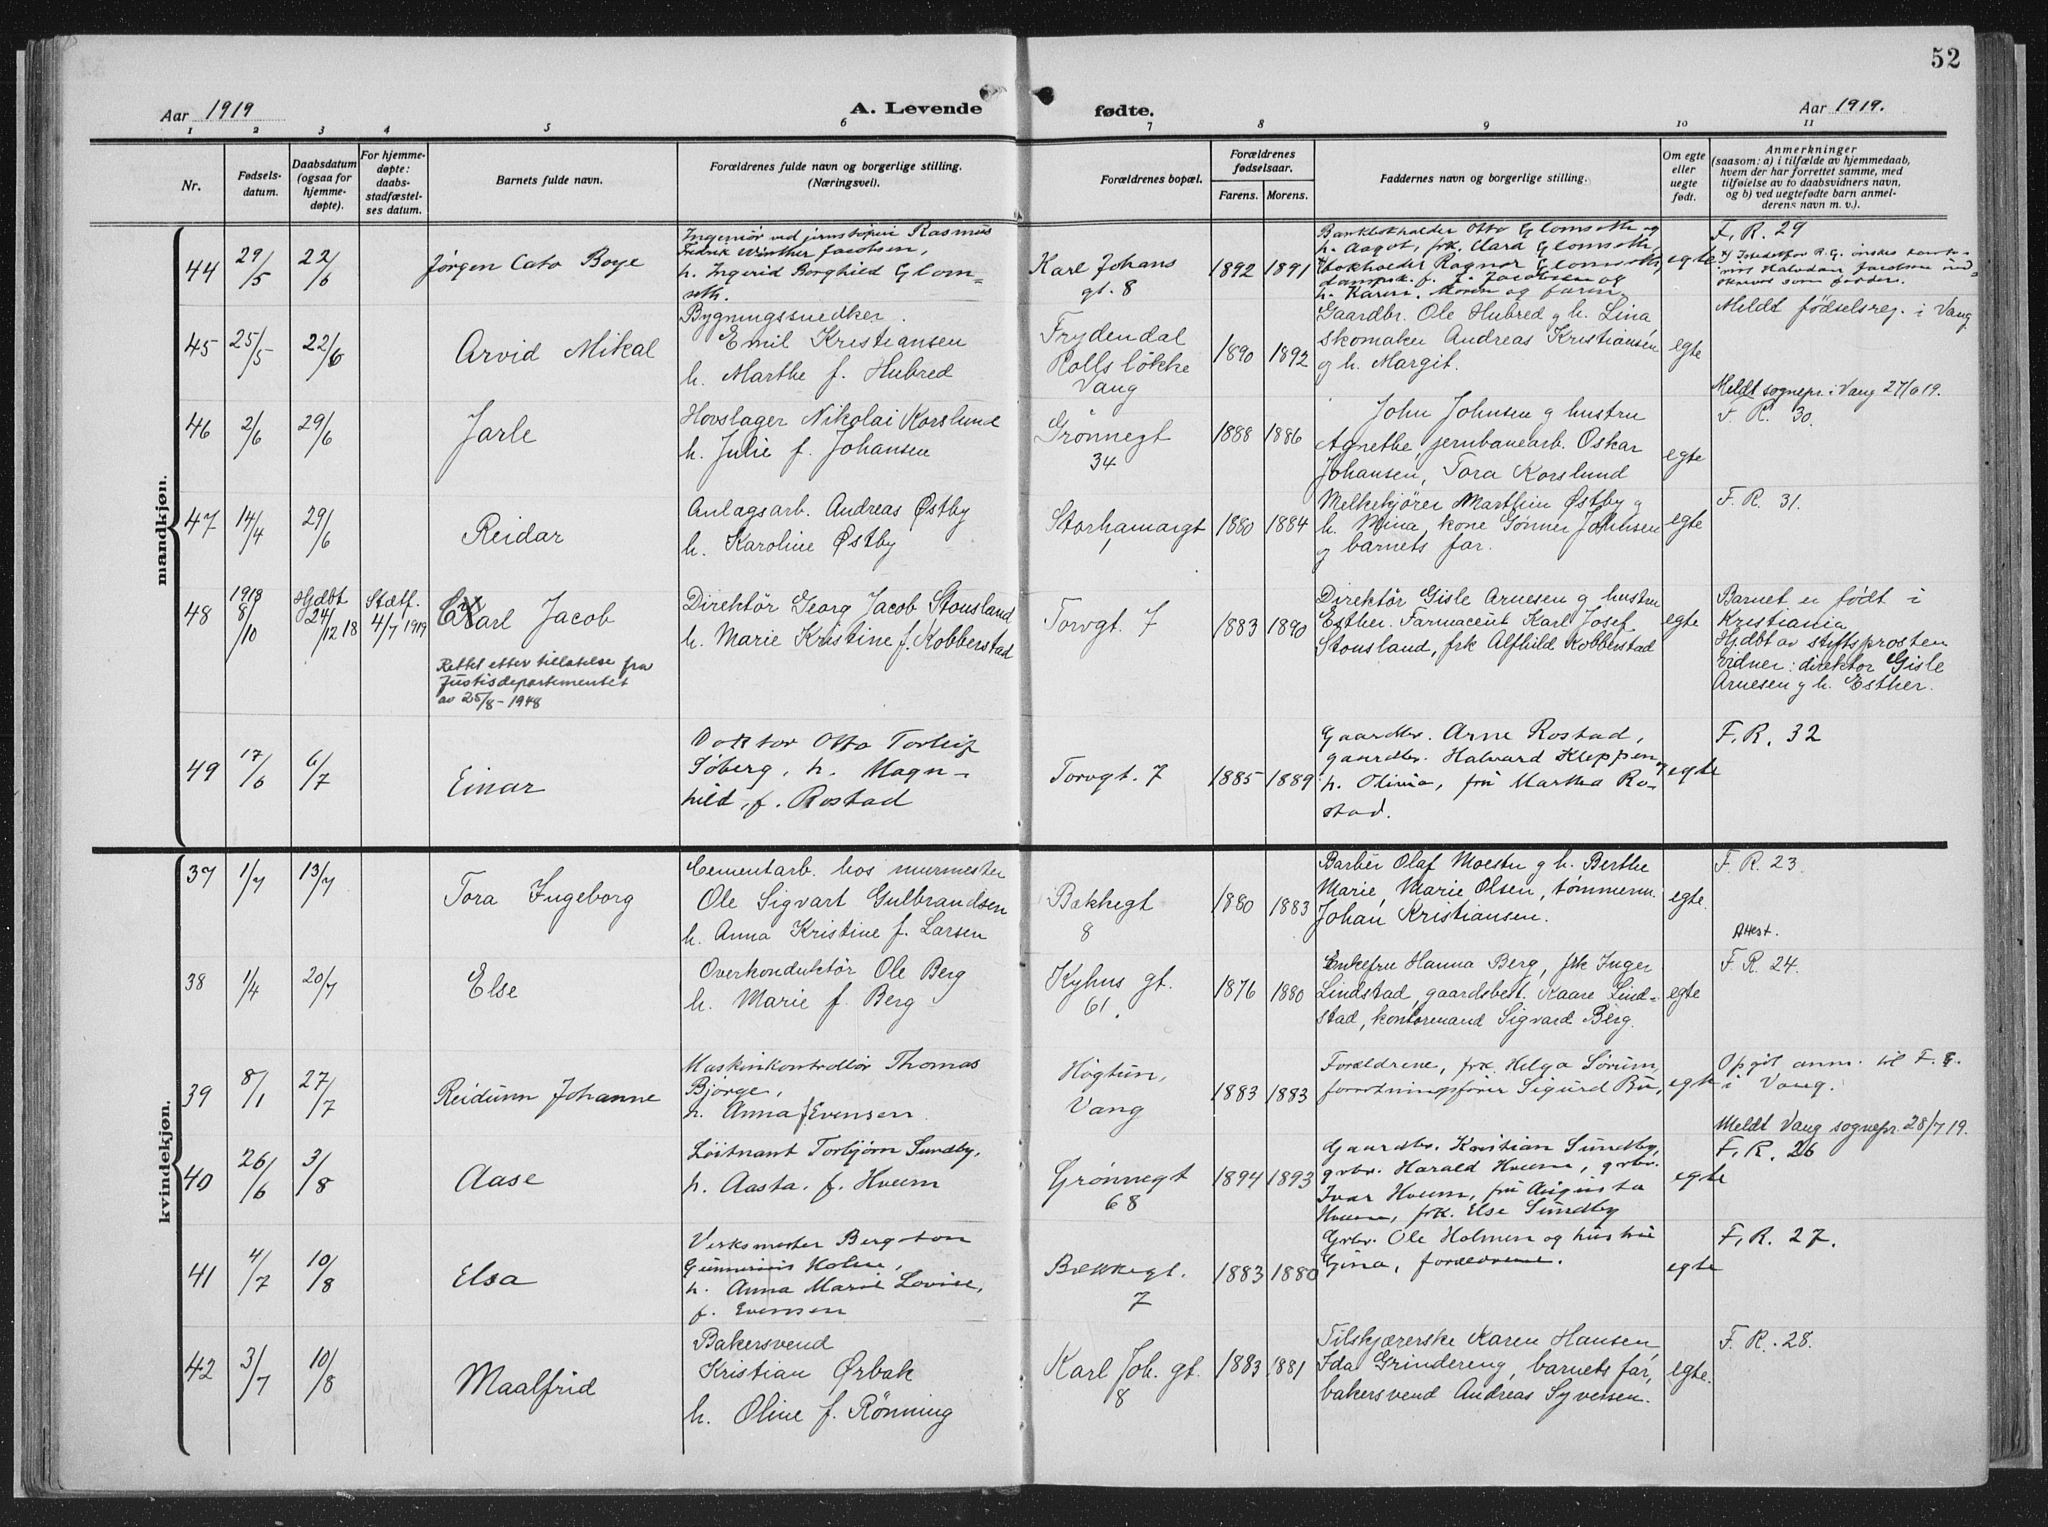 52
Aar 1919
A. Levende
fødte.
Aar 1919.
1 2 3 4 5 6 7 8 9 10 11
Nr.
Fødsels-
datum.
Daabsdatum
(ogsaa for
hjemme-
døpte).
For hjemme-
døpte:
daabs-
stadfæstel-
ses datum.
Barnets fulde navn.
Forældrenes fulde navn og borgerlige stilling.
(Næringsvei).
Forældrenes bopæl.
Forældrenes
fødselsaar.
Farens. Morens.
Faddernes navn og borgerlige stilling.
Om egte
eller
uegte
født.
Anmerkninger
(saasom: a) i tilfælde av hjemmedaab,
hvem der har forrettet samme, med
tilføielse av to daabsvidners navn,
og b) ved uegtefødte barn anmel-
derens navn m. v.).
mandkjøn.
44
29/5
22/6
Jørgen Cato Boye
Ingeniør ved jernstøperi Rasmus
Fredrik Winther Jacobsen,
h. Ingerid Borghild Glom-
seth.
Karl Johans
gt. 8
1892 1891
Bankbokholder Otto Glomseth og
h. Aagot, frk. Clara Glomseth,
Bokholder Ragnar Glomseth,
J. Jacobsen og
h. Karen. Moren og faren.
egte
F. R. 29
45
25/5
22/6
Arvid Mikal
Bygningssnedker
Emil Kristiansen
h. Marthe f. Hubred
Frydendal
Rolls løkke
Vang
1890 1892
Gaardbr. Ole Hubred g h. Lina
Skomaker Andreas Kristiansen
g h. Margit.
egte
Meldt fødselsreg. i Vang
Meldt sognepr. i Vang 27/6 19.
46
2/6
29/6
Jarle
Hovslager Nikolai Korslund
h. Julie f. Johansen
Grønnegt
34
1888 1886
John Johnsen g hustru
Agnethe, jernbanearb. Oskar
Johansen, Tora Korslund
egte
F. R. 30.
47
14/4
29/6
Reidar
Anlagsarb. Andreas Østby
h. Karoline Østby
Storhamargt
1
1880 1884
Melkekjører Marthin Østby g
h. Mina, kone Gønner Johnsen
g barnets far.
egte
F. R. 31.
48
1918
8/10
Hjdbt
24/12 18
Statf.
4/7 1919
Carl Jacob
Rettet etter tillatelse fra
Justisdepartementet
av 25/8-1948
Direktør Georg Jacob Stousland
h. Marie Kristine f. Kobberstad
Torvgt. 7
1883 1890
Direktør Gisle Arnesen g hustru
Esther. Farmaceut Karl Josef
Stousland, frk Alfhild Kobberstad
egte
Barnet er født i
Kristiania
Hjdbt av stiftsprosten
Vidner: direktør Gisle
Arnesen g h. Esther.
49
17/6
6/7
Einar
Doktor Otto Torleif
Søberg, h. Magn-
hild, f. Rostad
Torvgt. 7
1885 1889
Gaardbr. Arne Rostad,
gaardbr. Halvard Kleppen
h. Olivia, fru Martha Ro-
stad.
egte
F. R. 32
kvindekjøn.
37
1/7
13/7
Tora Ingeborg
Cementarb. hos murmester
Ole Sigvart Gulbrandsen
h. Anna Kristine f. Larsen
Bækkegt
8
1880 1883
Barber Olaf Moestu g h. Berthe
Marie, Marie Olsen, tømmerm.
Johan Kristiansen.
egte.
F. R. 23.
Attest.
38
1/4
20/7
Else
Overkonduktør Ole Berg
h. Marie f. Berg
Kyhus gt.
61.
1876 1880
Enkefru Hanna Berg, frk Inger
Lindstad, gaardsbest. Kaare Lind-
stad, kontormand Sigvard Berg.
egte
F. R. 24.
39
8/1
27/7
Reidunn Johanne
Maskinkontrollør Thomas
Bjørge,
h. Anna f. Evensen.
Høgtun,
Vang
1883 1883
Forældrene, frk. Helga Sørum,
forretningsfører Sigurd Bu,
egte
Opgit anm. til F. R.
i Vang.
Meldt Vang sognepr. 28/7 19.
40
26/6
3/8
Aase
Løitnant Torbjørn Sundby,
h. Aasta. f. Hveem
Grønnegt
68
1894 1893
Gaardbr. Kristian Sundby,
grbr. Harald Hveem, grbr.
Ivar Hveem, fru Augusta
Hveem, frk. Else Sundby
egte
F. R. 26
41
4/7
10/8
Elsa
Verksmester Bergston
Gunnerius Holm,
h. Anna Marie Lovise,
f. Evensen
Bækkegt.
7
1883 1880
Grbr. Ole Holmen og hustru
Gina, forældrene.
egte
F. R. 27.
42
3/7
10/8
Maalfrid
Bakersvend
Kristian Ørbak
h. Oline f. Rønning
Karl Joh. gt.
8
1883 1881
Tilskjærerske Karen Hansen,
Ida Grindereng, barnets far,
bakersvend Andreas Syversen.
egte.
F. R. 28.